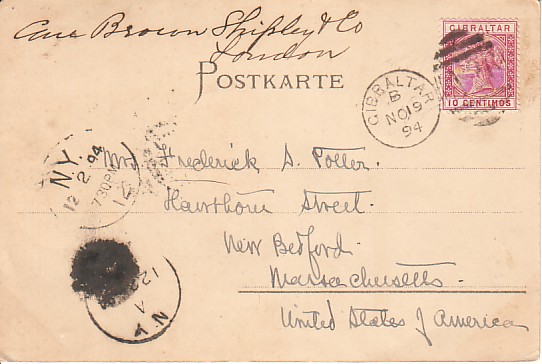 Care Brown Shipley & Co
London
POSTKARTE
GIBRALTAR
10 CENTIMOS
GIBRALTAR
B
NO 19
94
N.Y.
12 2 94
730PM
Mrs Frederick S. Potter.
Hawthorn Street.
New Bedford.
Massachusetts.
United States of America
N.Y